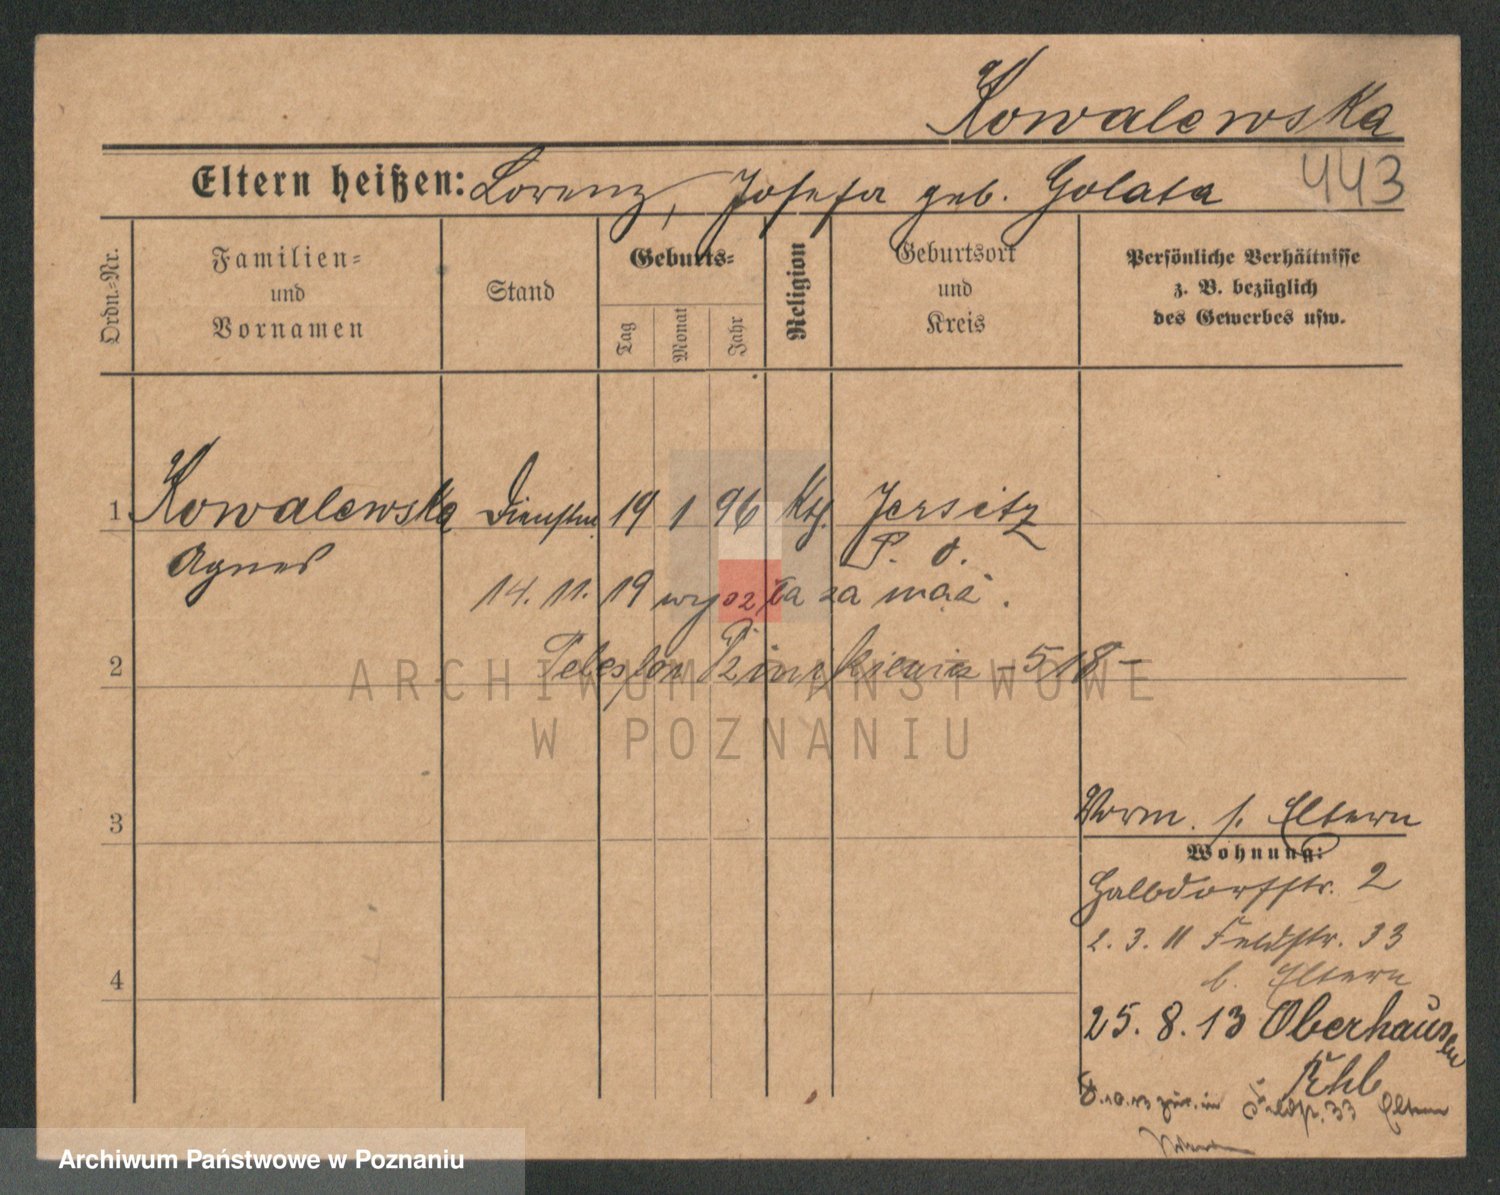 Kowalewska
Eltern heißen: Lorenz, Josefa geb. Golata
443
Ordn.-Nr.
Familien-
und
Vornamen
Stand
Geburts-
Tag
Monat
Jahr
Religion
Geburtsort
und
Kreis
Persönliche Verhältnisse
z. B. bezüglich
des Gewerbes usw.
1 Kowalewska Dienstm 19 1 96 Kth. Jersitz
Agnes P. O.
14. 11. 19 wyszła za mąż.
2 Telesfor -518-
ARCHIWUM PAŃSTWOWE
W POZNANIU
3
Vorm. s. Eltern
Wohnung:
Halbdorfstr. 2
2. 3. 11 Feldstr. 33
b. Eltern
4
25. 8. 13 Oberhausen
Rhl
zur. in Feldstr. 33 Eltern
Archiwum Państwowe w Poznaniu